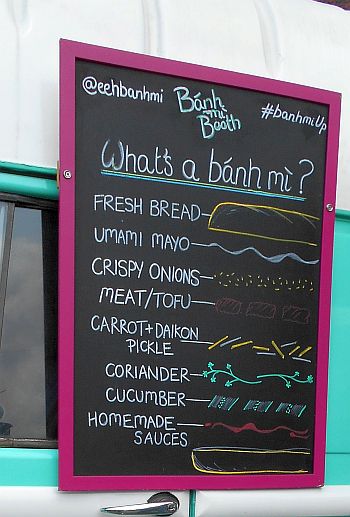 @eehbanhmi
Bánh
mì
Booth
#banhmiUp
What's a bánh mì?
FRESH BREAD
UMAMI MAYO
CRISPY ONIONS
MEAT/TOFU
CARROT+DAIKON
PICKLE
CORIANDER
CUCUMBER
HOMEMADE
SAUCES